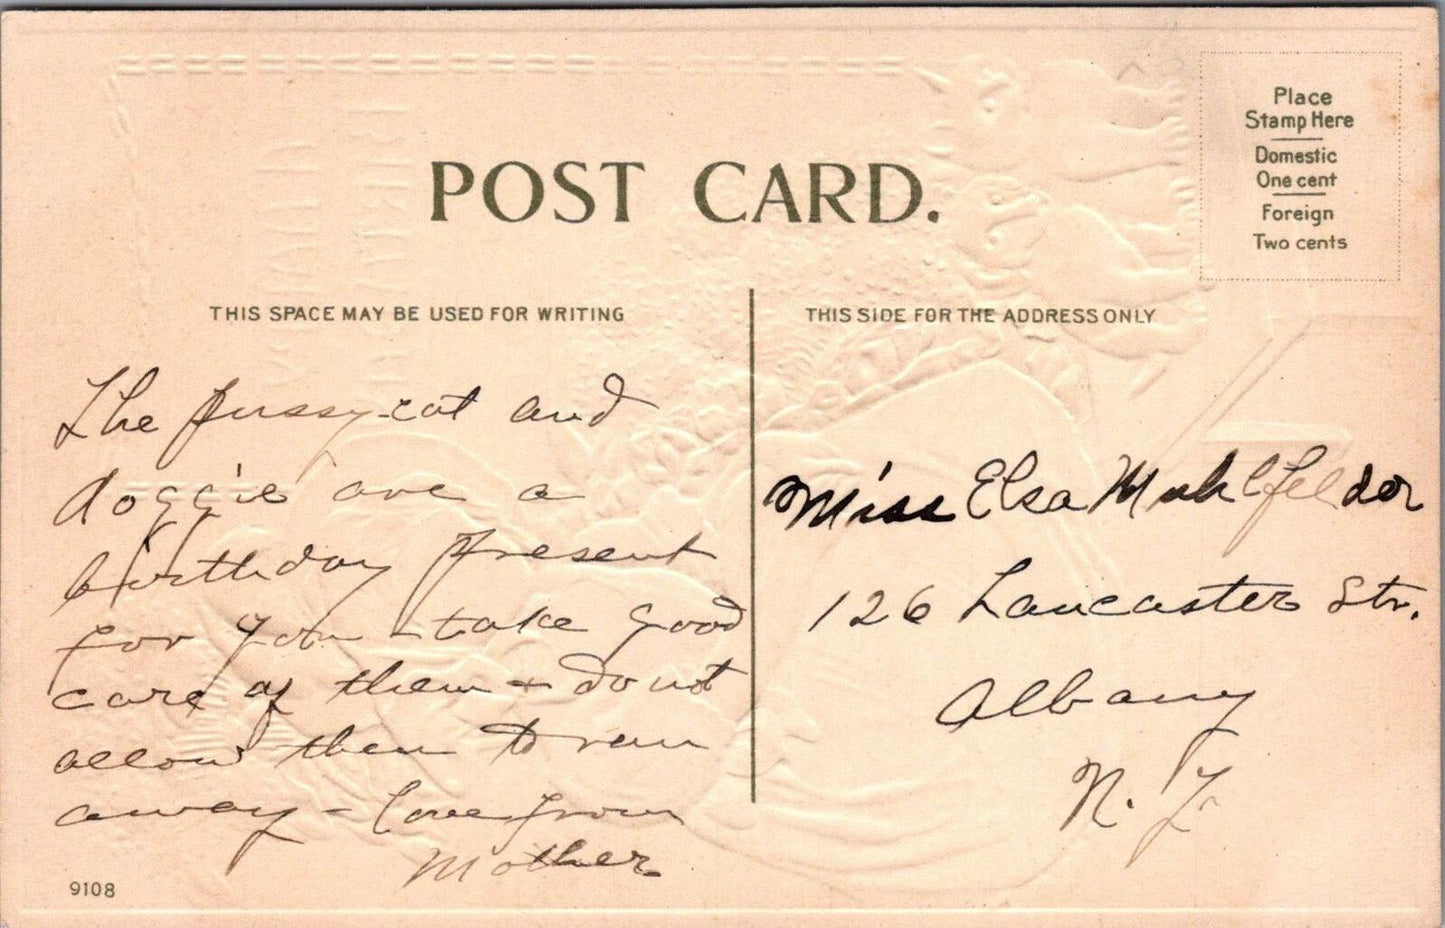 POST CARD.
Place
Stamp Here
Domestic
One cent
Foreign
Two cents
THIS SPACE MAY BE USED FOR WRITING
The pussy-cat and
doggie are a
birthday present
for you - take good
care of them + do not
allow them to run
away - love from
Mother.
9108
THIS SIDE FOR THE ADDRESS ONLY
Miss Elsa Muhlfelder
126 Lancaster Str.
Albany
N. Y.